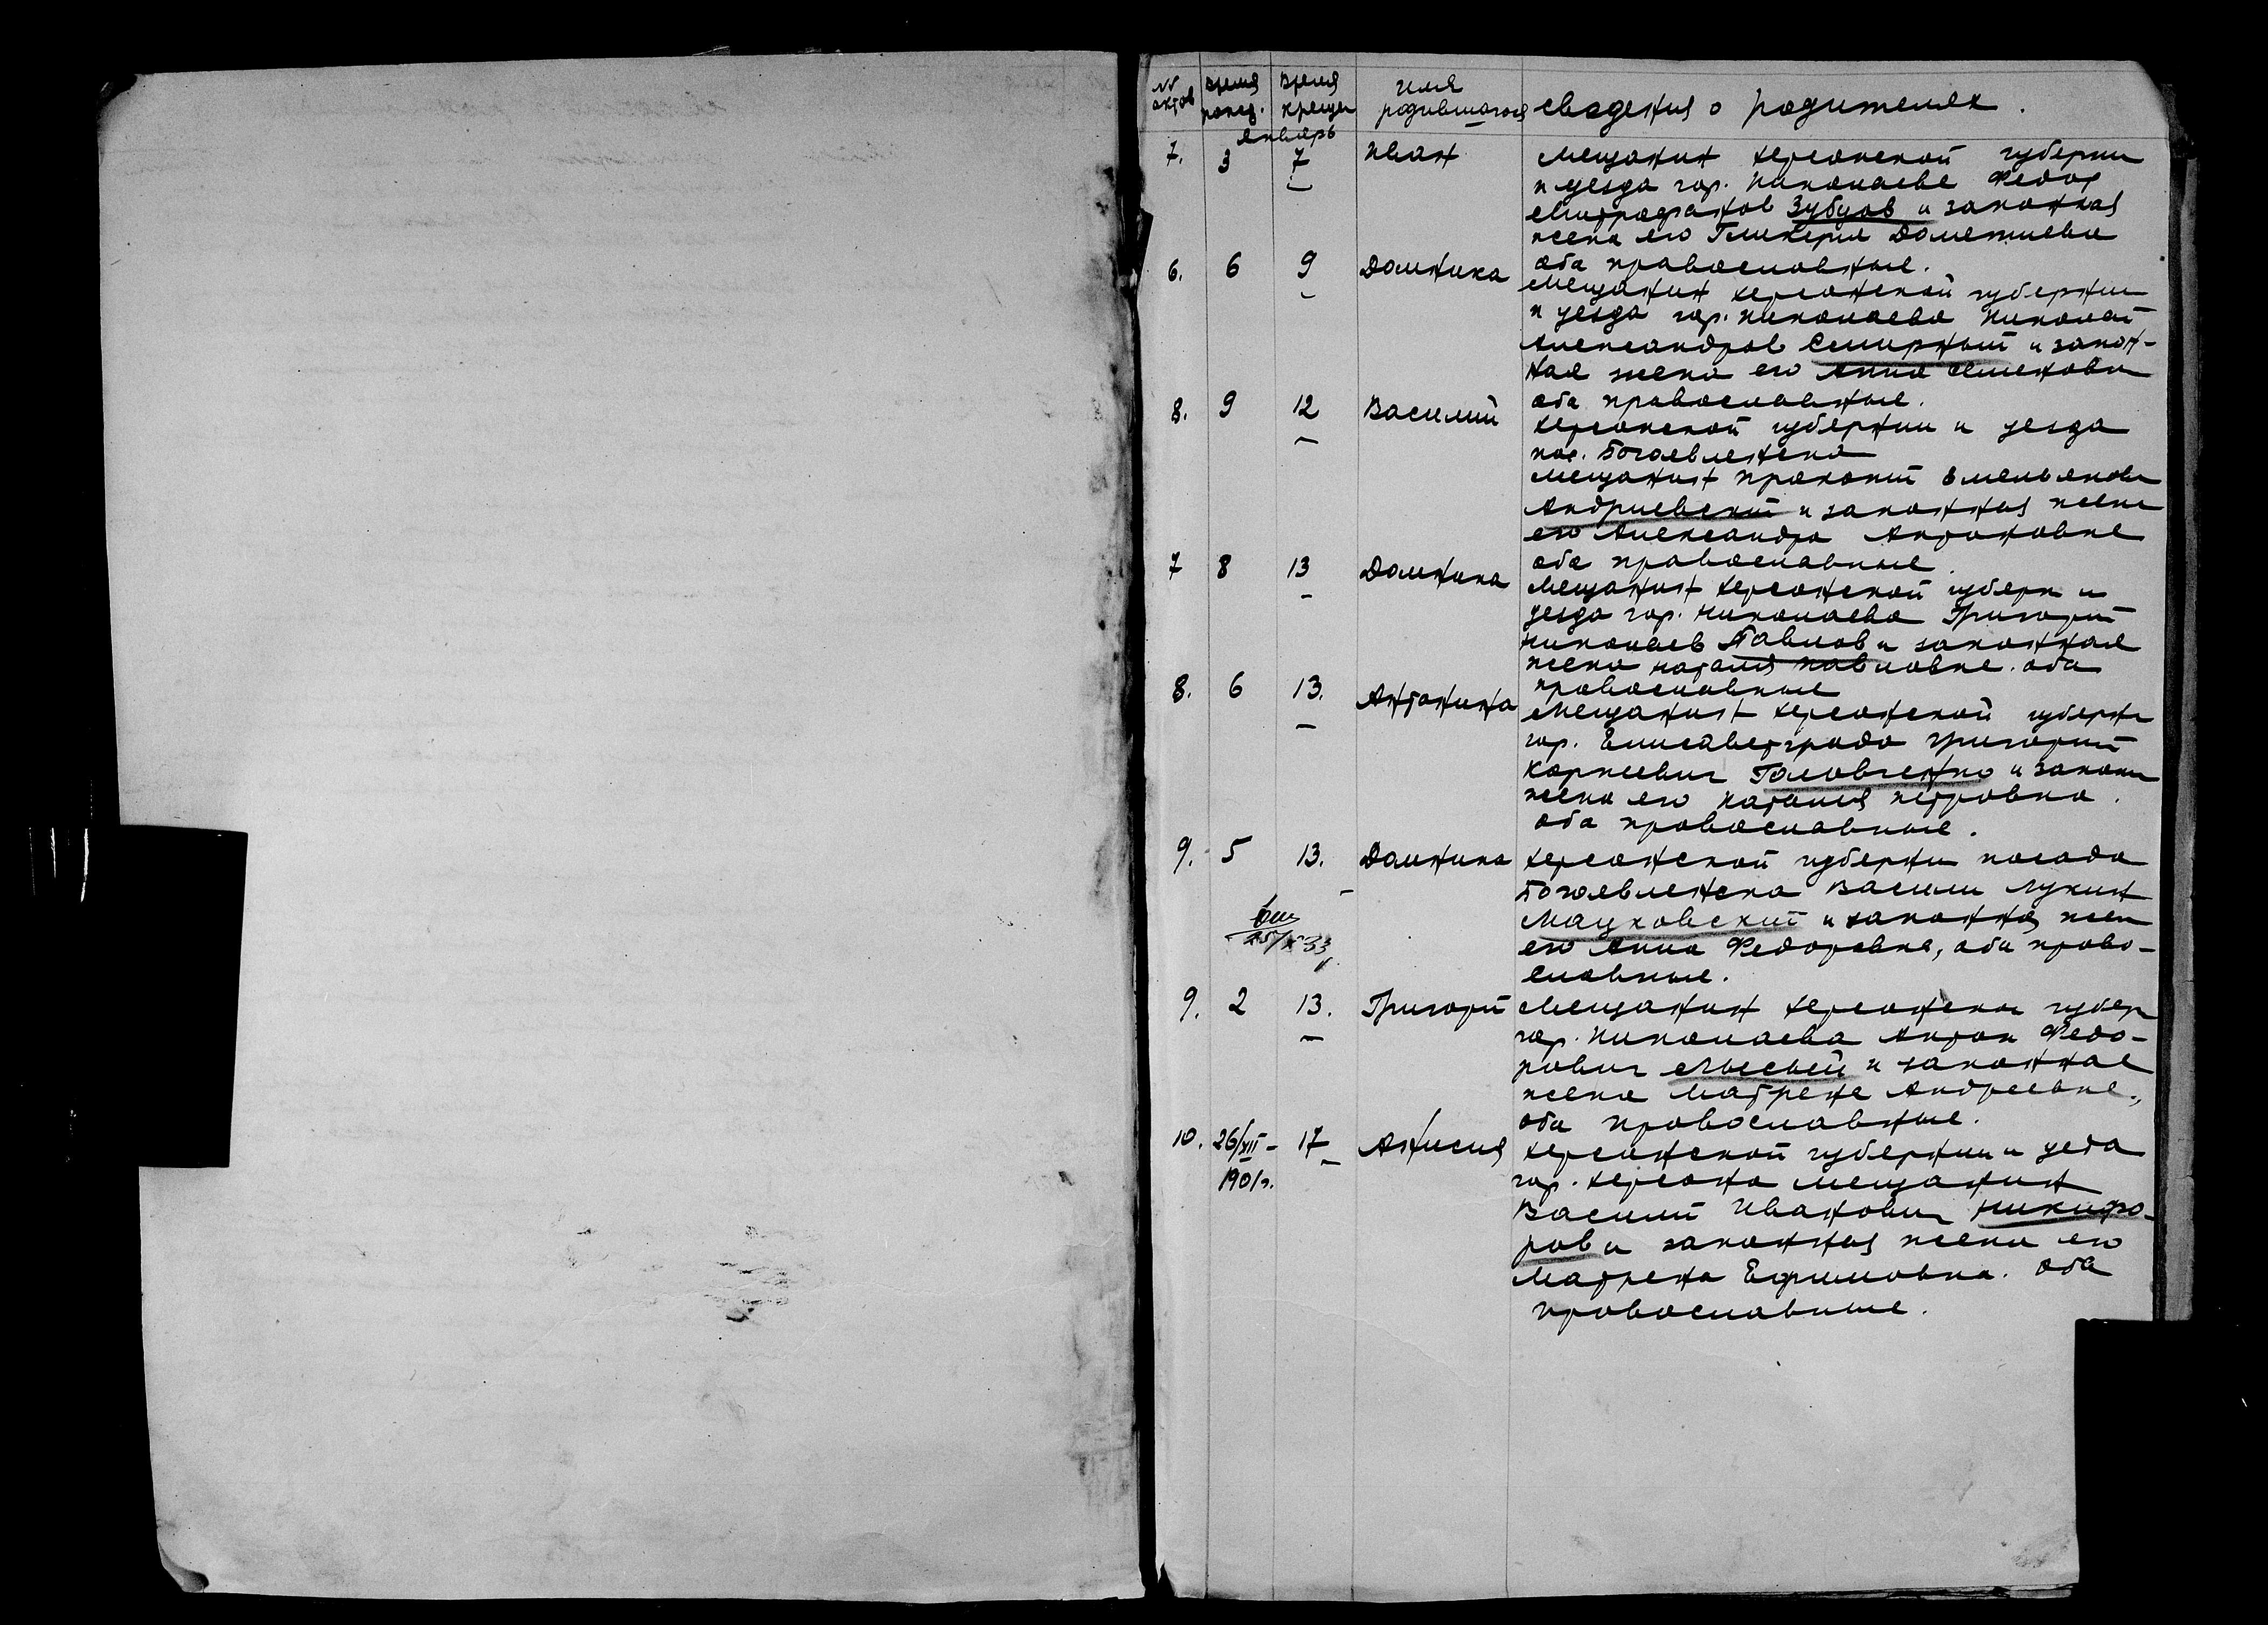 № актов время рожд. время креще имя родившагося сведения о родителях.
январь
7. 3 7 Иван мещанин херсонской губернии
и уезда гор. Николаева Федор
Митрофанов Зубцов и законная
жена его Гликерия Дометиева
оба православные.
6. 6 9 Домника мещанин херсонской губернии
и уезда гор. Николаева Николай
Александров Смирный и закон-
ная жена его Анна Семенова
оба православные.
8. 9 12 Василий херсонской губернии и уезда
пос. Богоявленска
мещанин Прокопий Емельянов
Андриевский и законная жена
его Александра Антоновна
оба православные
7 8 13 Домника мещанин херсонской губерн и
уезда гор. Николаева Григорий
Николаев Павлов и законная
жена Наталия Павловна. оба
православные
8. 6 13. Антонина мещанин херсонской губерн
гор. Елисаветграда Григорий
Корнеевич Головченко и законн
жена его Наталия Петровна.
оба православные.
9. 5 13. Домника херсонской губернии посада
Богоявленска Василий Лукин
Мацковский и законная жен
его Анна Федоровна, оба право-
славные.
9. 2 13. Григорий мещанин херсонской губер
гор. Николаева Антон Федо-
рович и законная
жена Матрена Андреевна,
оба православные.
10. 26/XII – 17 Анисия херсонской губернии и уезда
1901г. гор. Херсона мещанин
Василий Иванович Никифо-
ров и законная жена его
Матрена Ефимовна. оба
православные.